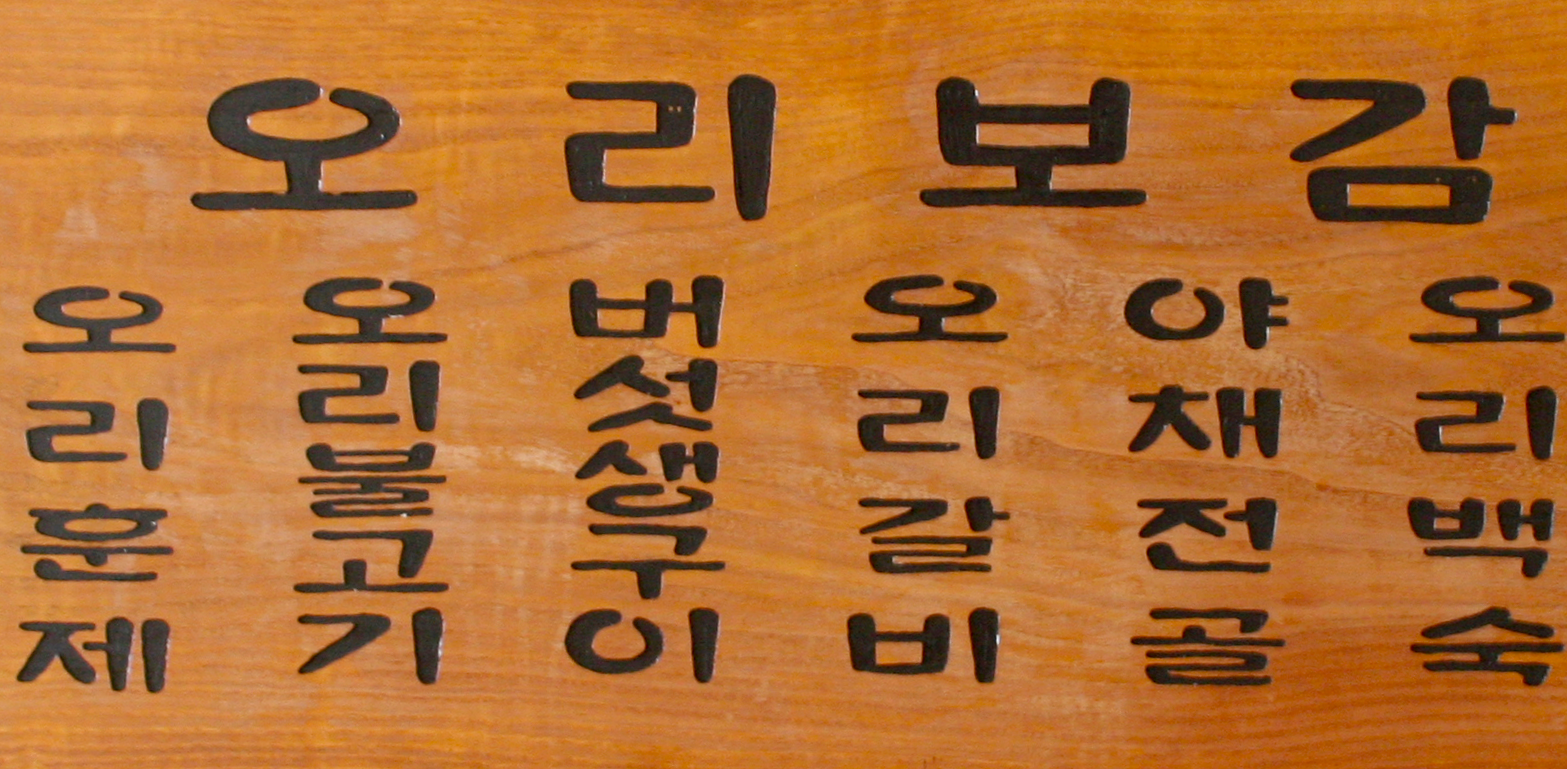 오리보감
오리훈제
오리불고기
버섯생구이
오리갈비
야채전골
오리백숙